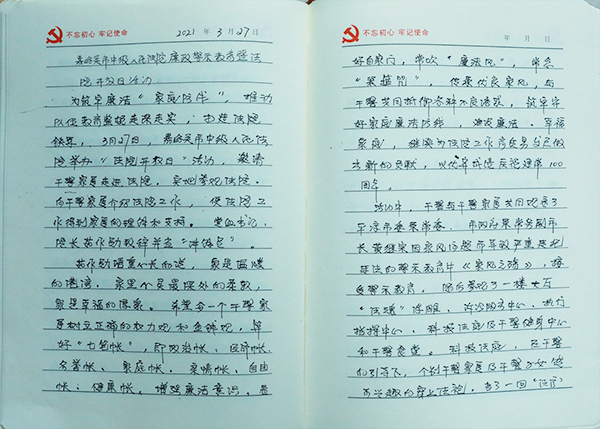 不忘初心 牢记使命
2021 年 3 月 27 日
嘉峪关市中级人民法院廉政警示教育暨法
院开放日活动
为筑牢廉洁"家庭防线",推动
队伍教育整顿走深走实,
3月27日,嘉峪关市中级人民法
院举办"法院开放日"活动,邀请
干警家属走进法院,实地参观法院,
向干警家属介绍法院工作,使法院工
作得到家属的理解和支持。党组书记、
院长黄作勋致辞并
黄作勋语重心长的说,家是温暖
的港湾,家里个
家是幸福的源泉。希望每一个干警家
属树立正确的权力观和金钱观,算
好"七笔帐",即政治帐、经济帐、
名誉帐、家庭帐、亲情帐、自由
帐、健康帐,增强廉洁意识,看
不忘初心 牢记使命
年 月 日
好自家门,常吹"廉洁风",常念
"紧箍咒",传承优良家风,与
干警共同抵御各种不良诱惑,筑牢守
好家庭廉洁防线,建设廉洁、幸福
家庭,继续为法院工作高质量发展做
出新的贡献,以优异成绩庆祝建党100
周年。
活动中,干警与干警家属共同观看了
市委原常委、市政府原常务副市
长黄继宗因家风
违法的警示教育片《家风之殇》,接
受警示教育,随后参观了一楼大厅
"法媛"浮雕、诉讼服务中心、执行
指挥中心、科技法庭及干警健身中心
和干警食堂。科技法庭,在干警
的引导下,个别干警家属及干警子女饶
有兴趣的穿上法袍,当了一回"法官"